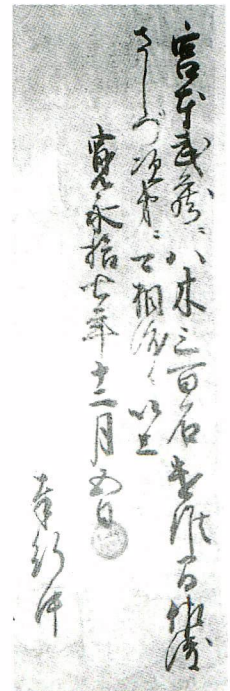 宮本武蔵ニ八木三百石遣候間佐渡
さしづ次第ニて相渡候以上
寛永拾七年十二月五日
奉行中